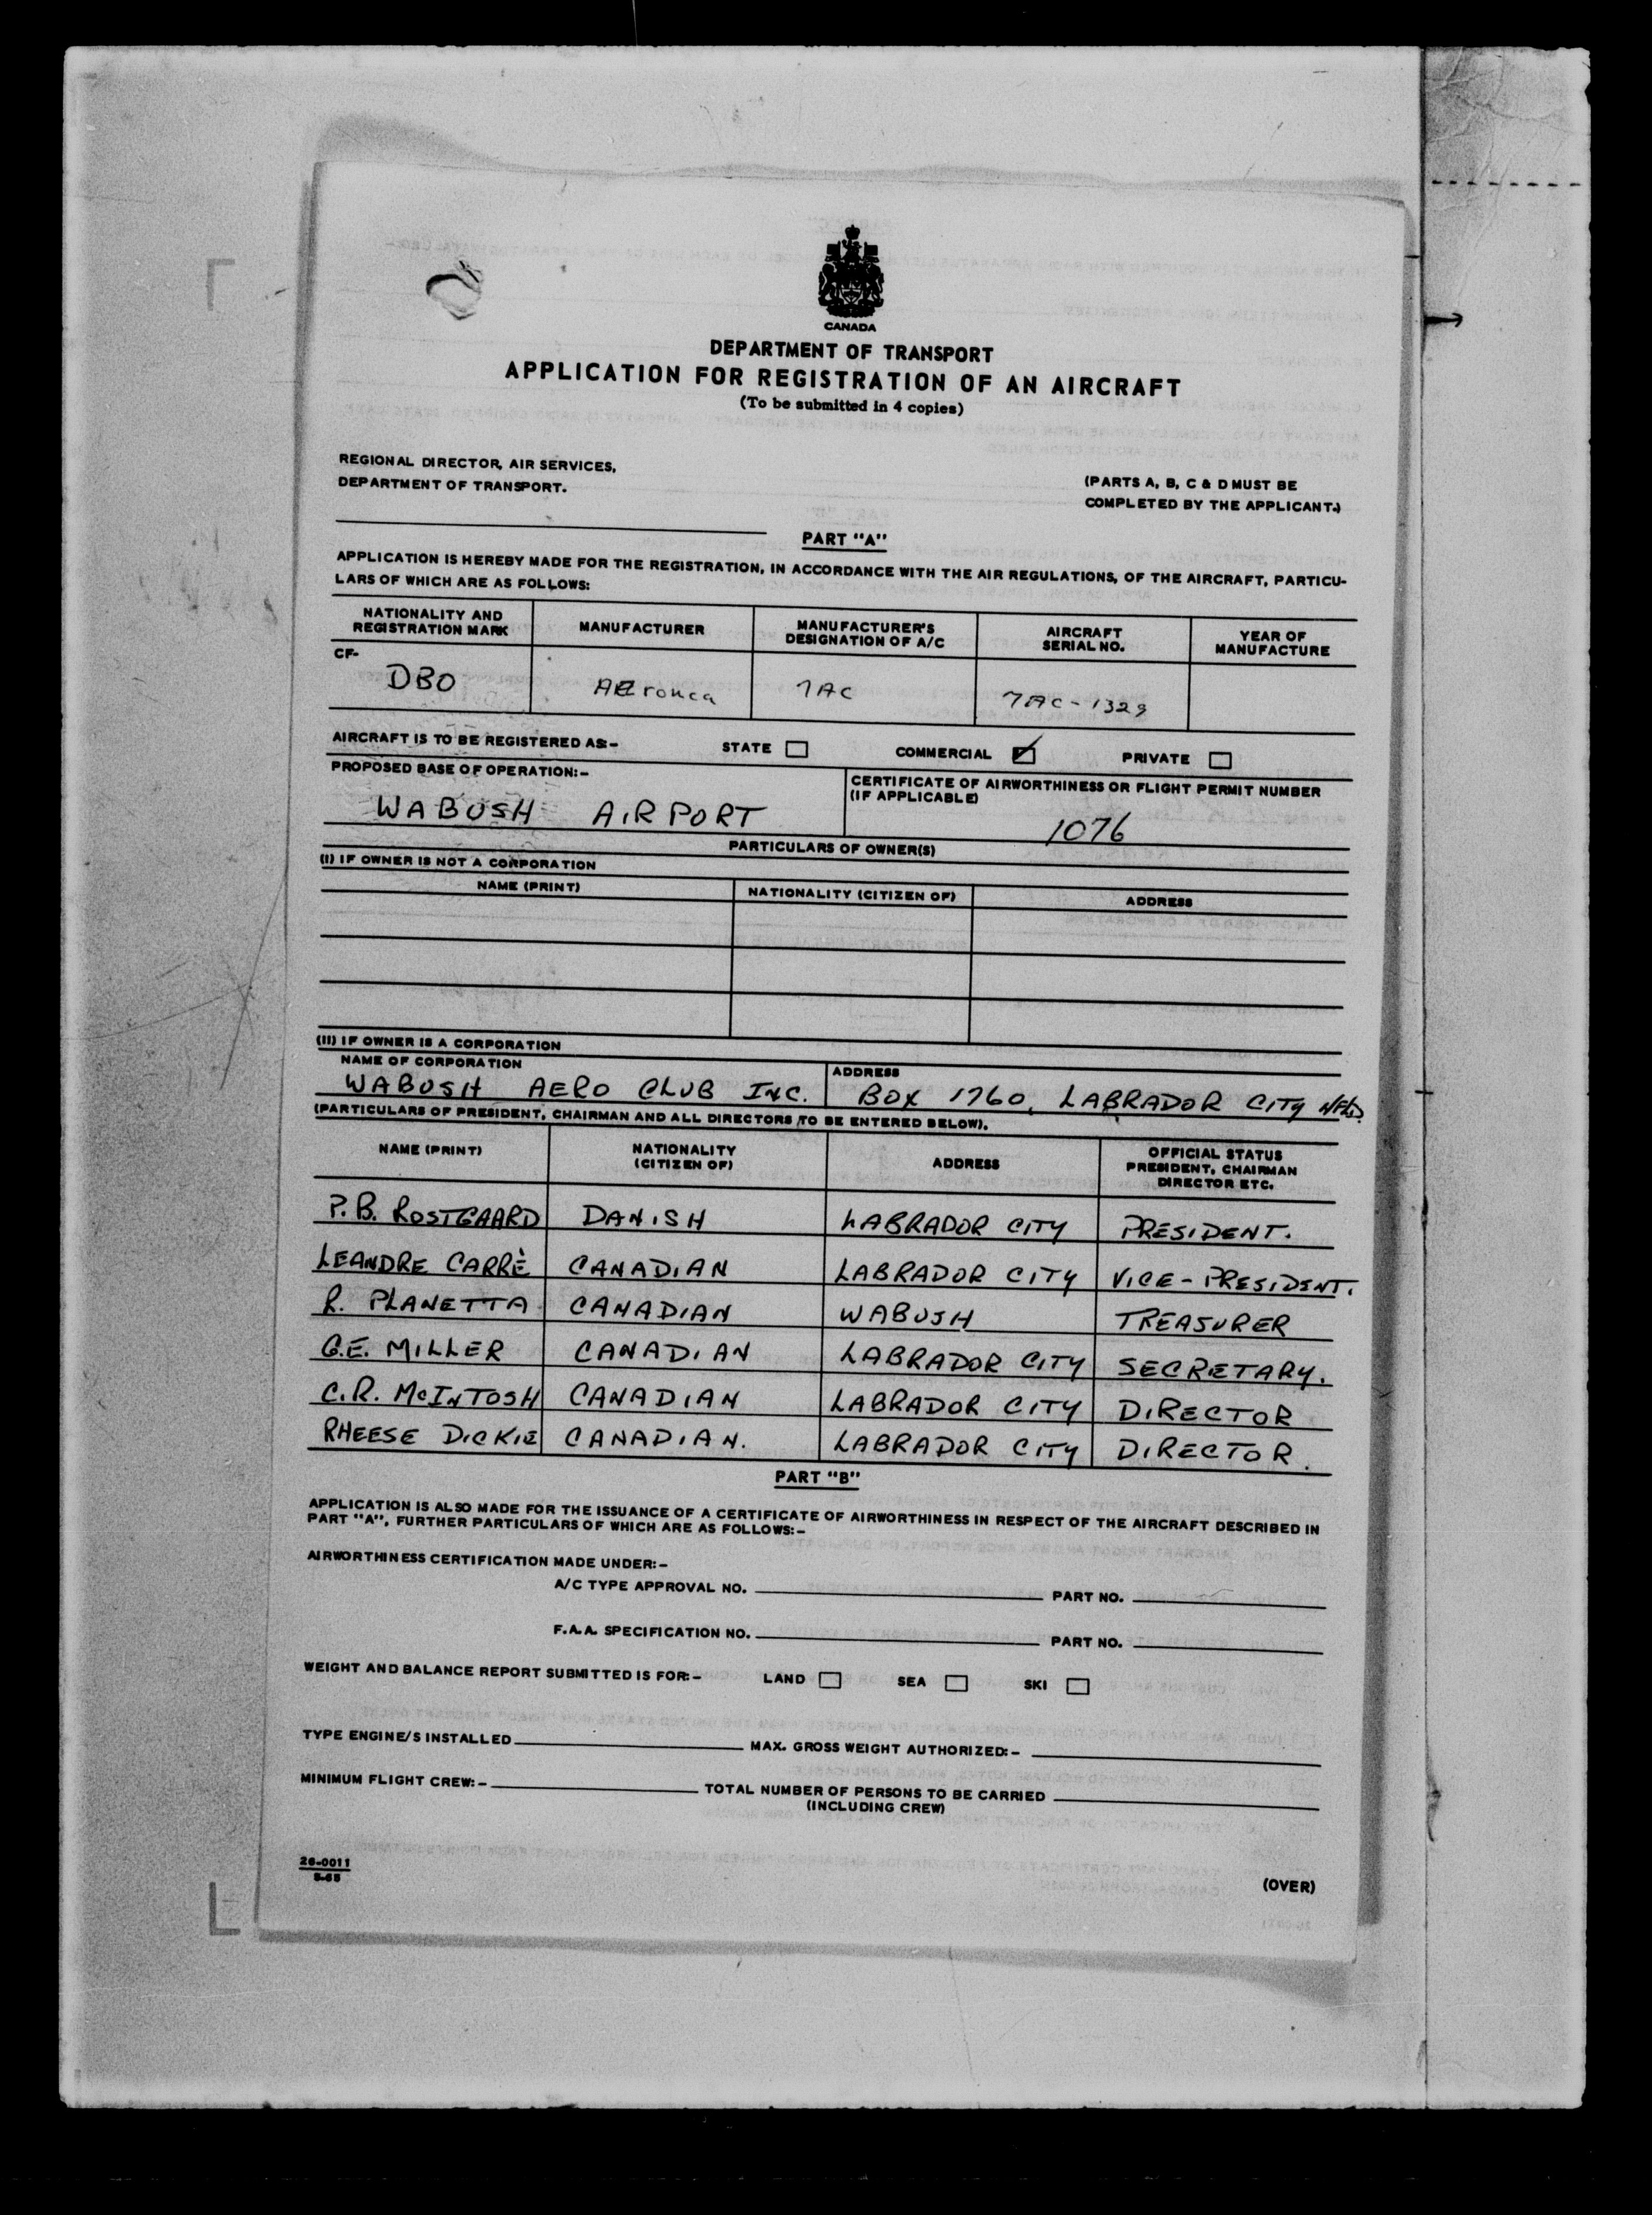 CANADA
DEPARTMENT OF TRANSPORT
APPLICATION FOR REGISTRATION OF AN AIRCRAFT
(To be submitted in 4 copies)
REGIONAL DIRECTOR, AIR SERVICES,
DEPARTMENT OF TRANSPORT.
(PARTS A, B, C & D MUST BE
COMPLETED BY THE APPLICANT.)
PART "A"
APPLICATION IS HEREBY MADE FOR THE REGISTRATION, IN ACCORDANCE WITH THE AIR REGULATIONS, OF THE AIRCRAFT, PARTICU-
LARS OF WHICH ARE AS FOLLOWS:
NATIONALITY AND REGISTRATION MARK MANUFACTURER MANUFACTURER'S DESIGNATION OF A/C AIRCRAFT SERIAL NO. YEAR OF MANUFACTURE
CF-
DBO AEronca 7AC 7AC-1329
AIRCRAFT IS TO BE REGISTERED AS:- STATE COMMERCIAL PRIVATE
PROPOSED BASE OF OPERATION:-
WABUSH AIRPORT
CERTIFICATE OF AIRWORTHINESS OR FLIGHT PERMIT NUMBER
(IF APPLICABLE)
1076
PARTICULARS OF OWNER(S)
(I) IF OWNER IS NOT A CORPORATION
NAME (PRINT) NATIONALITY (CITIZEN OF) ADDRESS
(II) IF OWNER IS A CORPORATION
NAME OF CORPORATION ADDRESS
WABUSH AERO CLUB INC. BOX 1760, LABRADOR CITY NFLD.
(PARTICULARS OF PRESIDENT, CHAIRMAN AND ALL DIRECTORS TO BE ENTERED BELOW).
NAME (PRINT) NATIONALITY (CITIZEN OF) ADDRESS OFFICIAL STATUS PRESIDENT, CHAIRMAN DIRECTOR ETC.
P.B. ROSTGAARD DANISH LABRADOR CITY PRESIDENT.
LEANDRE CARRÈ CANADIAN LABRADOR CITY VICE-PRESIDENT.
R. PLANETTA CANADIAN WABUSH TREASURER
G.E. MILLER CANADIAN LABRADOR CITY SECRETARY.
C.R. McINTOSH CANADIAN LABRADOR CITY DIRECTOR
RHEESE DICKIE CANADIAN. LABRADOR CITY DIRECTOR.
PART "B"
APPLICATION IS ALSO MADE FOR THE ISSUANCE OF A CERTIFICATE OF AIRWORTHINESS IN RESPECT OF THE AIRCRAFT DESCRIBED IN
PART "A", FURTHER PARTICULARS OF WHICH ARE AS FOLLOWS:-
AIRWORTHINESS CERTIFICATION MADE UNDER:-
A/C TYPE APPROVAL NO. PART NO.
F.A.A. SPECIFICATION NO. PART NO.
WEIGHT AND BALANCE REPORT SUBMITTED IS FOR:- LAND SEA SKI
TYPE ENGINE/S INSTALLED MAX. GROSS WEIGHT AUTHORIZED:-
MINIMUM FLIGHT CREW:- TOTAL NUMBER OF PERSONS TO BE CARRIED
(INCLUDING CREW)
26-0011
(OVER)